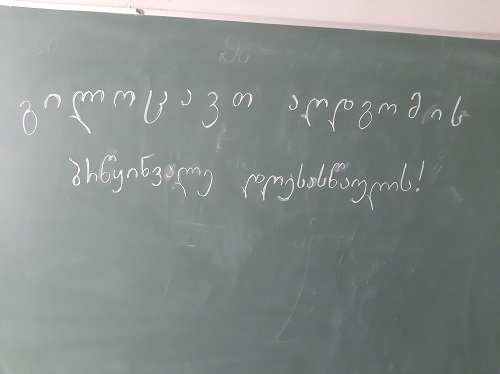 გილოცავთ აღდგომის
ბრწყინვალე დღესასწაულს!